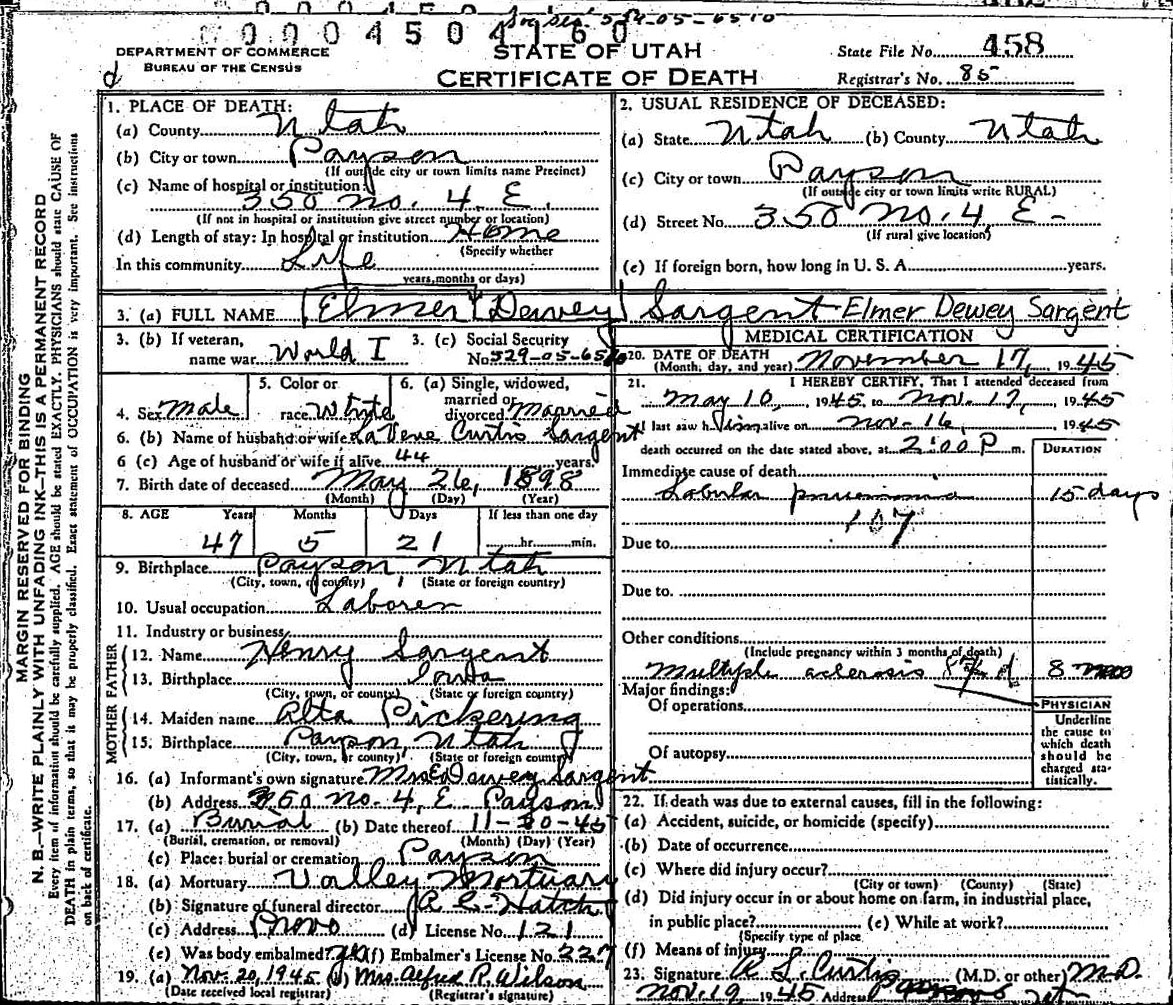 Soc Sec 529-05-6510
0 0 0 4 5 0 4 1 6 0
DEPARTMENT OF COMMERCE
BUREAU OF THE CENSUS
d
STATE OF UTAH
CERTIFICATE OF DEATH
State File No. 458
Registrar's No. 85
MARGIN RESERVED FOR BINDING
N. B.—WRITE PLAINLY WITH UNFADING INK—THIS IS A PERMANENT RECORD
Every item of information should be carefully supplied. AGE should be stated EXACTLY. PHYSICIANS should state CAUSE OF
DEATH in plain terms, so that it may be properly classified. Exact statement of OCCUPATION is very important. See instructions
on back of certificate.
1. PLACE OF DEATH:
(a) County Utah
(b) City or town Payson
(If outside city or town limits name Precinct)
(c) Name of hospital or institution:
350 No. 4. E.
(If not in hospital or institution give street number or location)
(d) Length of stay: In hospital or institution Home
(Specify whether
In this community Life
years, months or days)
2. USUAL RESIDENCE OF DECEASED:
(a) State Utah (b) County Utah
(c) City or town Payson
(If outside city or town limits write RURAL)
(d) Street No. 350 No. 4, E-
(If rural give location)
(e) If foreign born, how long in U. S. A. years.
3. (a) FULL NAME Elmer Dewey Sargent Elmer Dewey Sargent
3. (b) If veteran, name war World I
3. (c) Social Security No. 529-05-6510
4. Sex Male
5. Color or race White
6. (a) Single, widowed, married or divorced Married
6. (b) Name of husband or wife LaVene Curtis Sargent
6 (c) Age of husband or wife if alive 44 years.
7. Birth date of deceased May 26, 1898
(Month) (Day) (Year)
8. AGE Years Months Days If less than one day
47 5 21 hr. min.
9. Birthplace Payson Utah
(City, town, or county) (State or foreign country)
10. Usual occupation Laborer
11. Industry or business
FATHER
12. Name Henry Sargent
13. Birthplace Iowa
(City, town, or county) (State or foreign country)
MOTHER
14. Maiden name Alta Pickering
15. Birthplace Payson, Utah
(City, town, or county) (State or foreign country)
16. (a) Informant's own signature Mrs E Dewey Sargent
(b) Address 350 No. 4, E Payson
17. (a) Burial (b) Date thereof 11-20-45
(Burial, cremation, or removal) (Month) (Day) (Year)
(c) Place: burial or cremation Payson
18. (a) Mortuary Valley Mortuary
(b) Signature of funeral director A E Hatch
(c) Address Provo (d) License No. 121
(e) Was body embalmed? (f) Embalmer's License No. 227
19. (a) Nov. 20, 1945 (b) Mrs. Alfred P. Wilson
(Date received local registrar) (Registrar's signature)
MEDICAL CERTIFICATION
20. DATE OF DEATH
(Month, day, and year) November 17, 1945
21. I HEREBY CERTIFY, That I attended deceased from
May 10, 1945, to Nov. 17, 1945
I last saw him alive on Nov-16, 1945
death occurred on the date stated above, at 2:00 P m.
DURATION
Immediate cause of death
Lobular pneumonia 15 days
107
Due to
Due to.
Other conditions
(Include pregnancy within 3 months of death)
Multiple sclerosis 8 mos
Major findings:
Of operations
Of autopsy
PHYSICIAN
Underline
the cause to
which death
should be
charged sta-
tistically.
22. If death was due to external causes, fill in the following:
(a) Accident, suicide, or homicide (specify)
(b) Date of occurrence
(c) Where did injury occur?
(City or town) (County) (State)
(d) Did injury occur in or about home on farm, in industrial place,
in public place? (e) While at work?
(Specify type of place
(f) Means of injury
23. Signature A. L. Curtis (M.D. or other) M.D.
Nov. 19 1945 Address Payson Ut